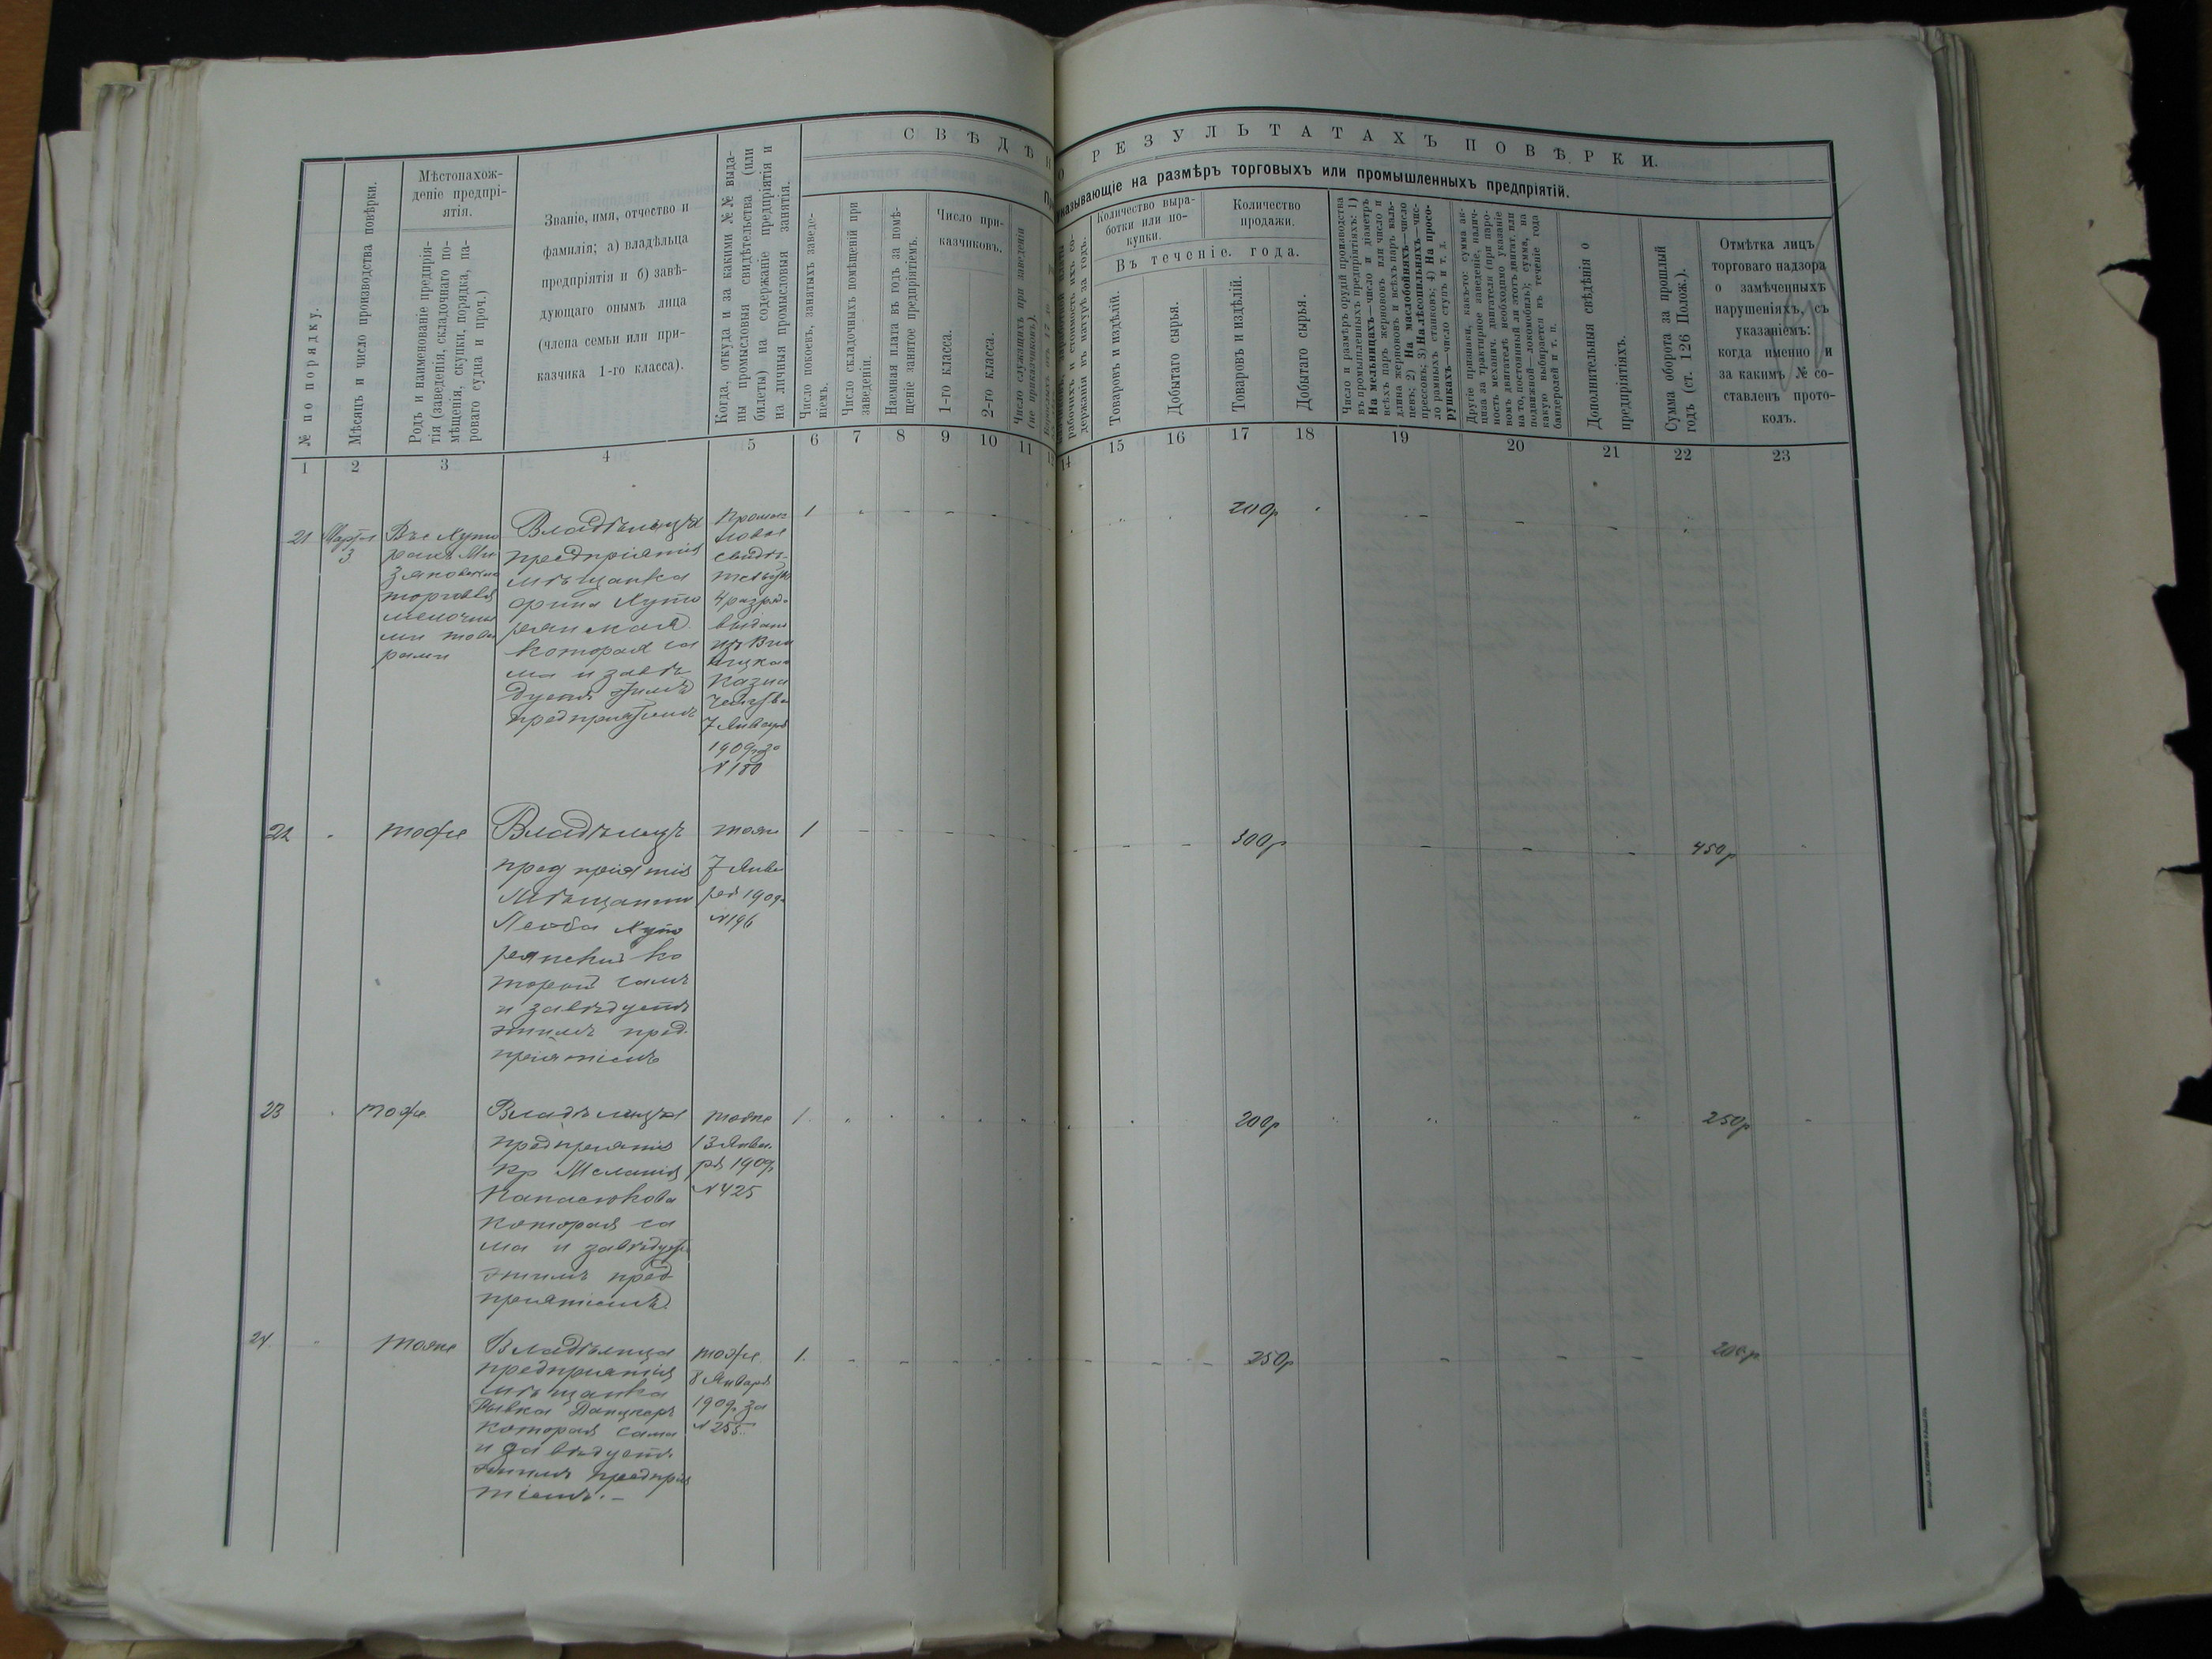 СВѢДѢН
О РЕЗУЛЬТАТАХЪ ПОВѢРКИ.
указывающіе на размѣръ торговыхъ или промышленныхъ предпріятій.
№ по порядку.
Мѣсяцъ и число производства повѣрки.
Мѣстонахож-
деніе предпрі-
ятія.
Родъ и наименованіе предпрія-
тія (заведенія, складочнаго по-
мѣщенія, скупки, порядка, па-
роваго судна и проч.)
Званіе, имя, отчество и
фамилія; а) владѣльца
предпріятія и б) завѣ-
дующаго онымъ лица
(члена семьи или при-
казчика 1-го класса).
Когда, откуда и за какими №№ выда-
ны промысловыя свидѣтельства (или
билеты) на содержаніе предпріятія и
на личныя промысловыя занятія.
Число покоевъ, занятыхъ заведе-
ніемъ.
Число складочныхъ помѣщеній при
заведеніи.
Наемная плата въ годъ за помѣ-
щеніе занятое предпріятіемъ.
Число при-
казчиковъ.
1-го класса.
2-го класса.
Число служащихъ при заведеніи
(не приказчиковъ).
рабочихъ и стоимость ихъ со-
держанія въ натурѣ за годъ.
Количество выра-
ботки или по-
купки.
Количество
продажи.
Въ теченіе года.
Товаровъ и издѣлій.
Добытаго сырья.
Товаровъ и издѣлій.
Добытаго сырья.
Число и размѣръ орудій производства
въ промышленныхъ предпріятіяхъ: 1)
На мельницахъ—число и діаметръ
всѣхъ паръ жернововъ или число и
длина жернововъ и всѣхъ паръ валь-
цевъ; 2) На маслобойняхъ—число
прессовъ; 3) На лѣсопильняхъ—чис-
ло рамныхъ станковъ; 4) На просо-
рушкахъ—число ступъ и т. д.
Другіе признаки, какъ-то: сумма ак-
циза за трактирное заведеніе, налич-
ность механич. двигателя (при паро-
вомъ двигателѣ необходимо указаніе
на то, постоянный ли этотъ двигат. или
подвижной—локомобиль); сумма, на
какую выбирается въ теченіе года
бандеролей и т. п.
Дополнительныя свѣдѣнія о
предпріятіяхъ.
Сумма оборота за прошлый
годъ (ст. 126 Полож.).
Отмѣтка лицъ
торговаго надзора
о замѣченныхъ
нарушеніяхъ, съ
указаніемъ:
когда именно и
за какимъ № со-
ставленъ прото-
колъ.
1 2 3 4 5 6 7 8 9 10 11
14 15 16 17 18 19 20 21 22 23
21
Марта
3
Въ с Хуто
рахъ Ми
зяковскихъ
торговля
мелочны
ми това
рами
Владѣлица
предпріятія
мѣщанка
Хуто
рянская
которая са
ма и завѣ
дуетъ этимъ
предпріятіемъ
Промыс
ловое
свидѣ-
тельство
4 разряда
выдано
изъ Вин
ницкаго
Казна
чейства
7 Января
1909 г за
№ 180
1
200р
22
тоже
Владѣлецъ
предпріятія
Мѣщанинъ
Хуто
рянскій ко
торый самъ
и завѣдуетъ
этимъ пред
пріятіемъ
тоже
7 Янва
ря 1909г
№ 196
1
300р
450р
23
тоже
Владѣлица
предпріятія
кр Меланія
Панасюкова
которая са
ма и завѣдуетъ
этимъ пред
пріятіемъ
тоже
13 Янва
ря 1909г
№ 425
1
200р
250р
24
тоже
Владѣлица
предпріятія
мѣщанка
Рывка Данцкеръ
которая сама
и завѣдуетъ
этимъ предпрія
тіемъ. –
тоже
8 Января
1909г за
№ 255
1.
250р
200р